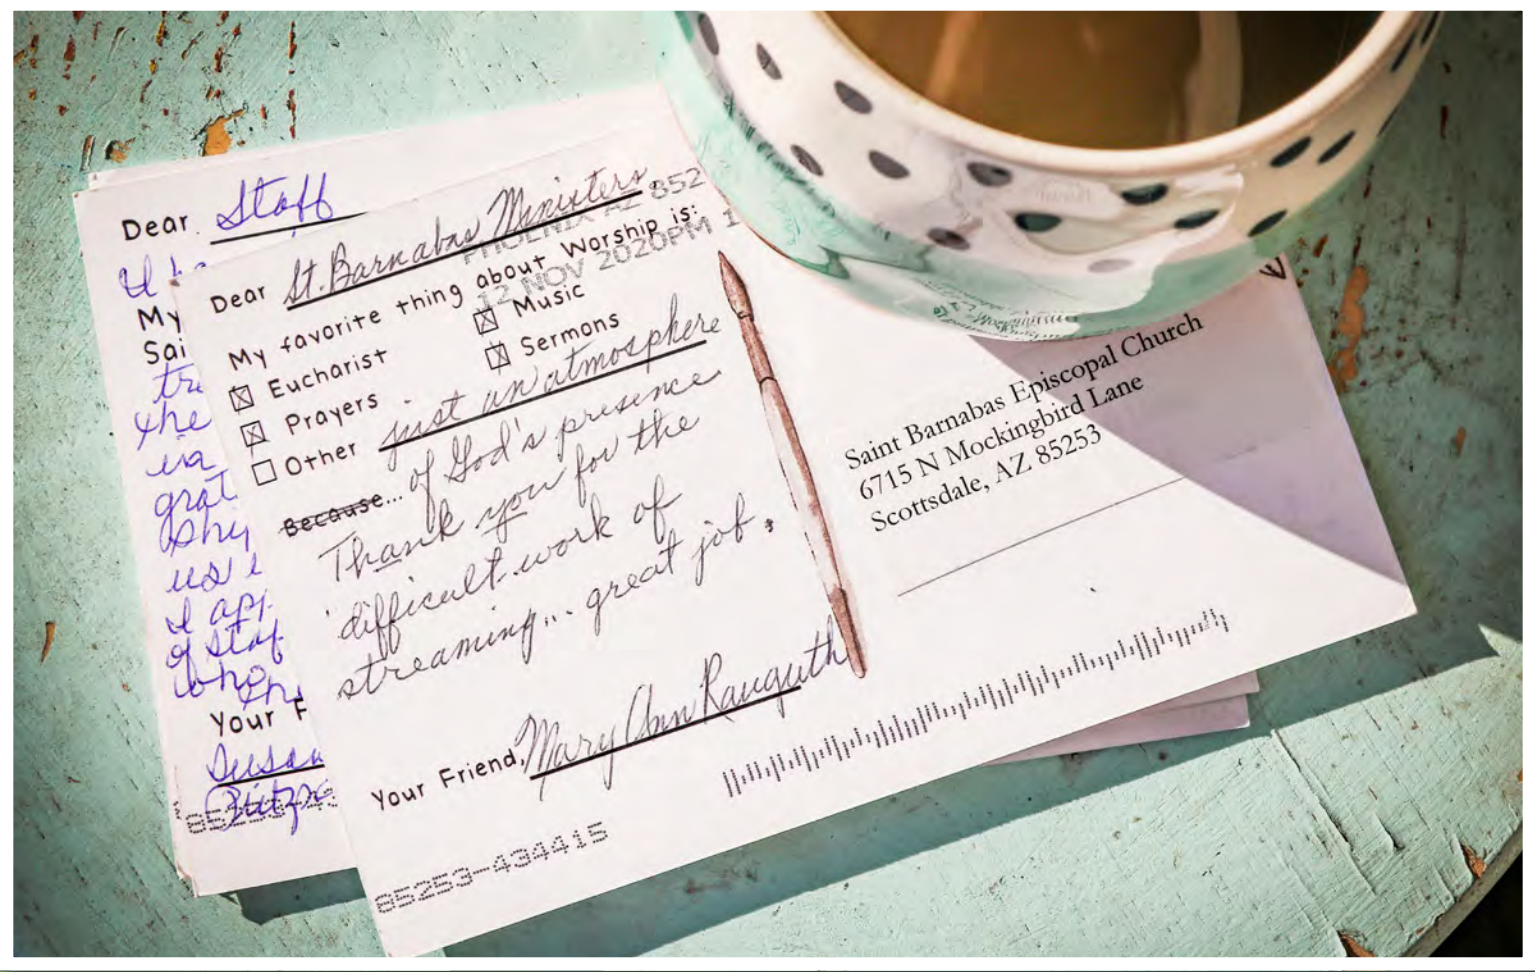 Dear Staff
My
Sai
the
us
of Staf
who
Your F
Susan
Dear St. Barnabas Ministers,
PHOENIX AZ 852
12 NOV 2020PM 1
My favorite thing about Worship is:
☒ Eucharist ☒ Music
☒ Prayers ☒ Sermons
☐ Other just an atmosphere
Because... of God's presence
Thank you for the
difficult work of
streaming... great job.
Your Friend, Mary Ann Rauguth
85253-434415
Saint Barnabas Episcopal Church
6715 N Mockingbird Lane
Scottsdale, AZ 85253